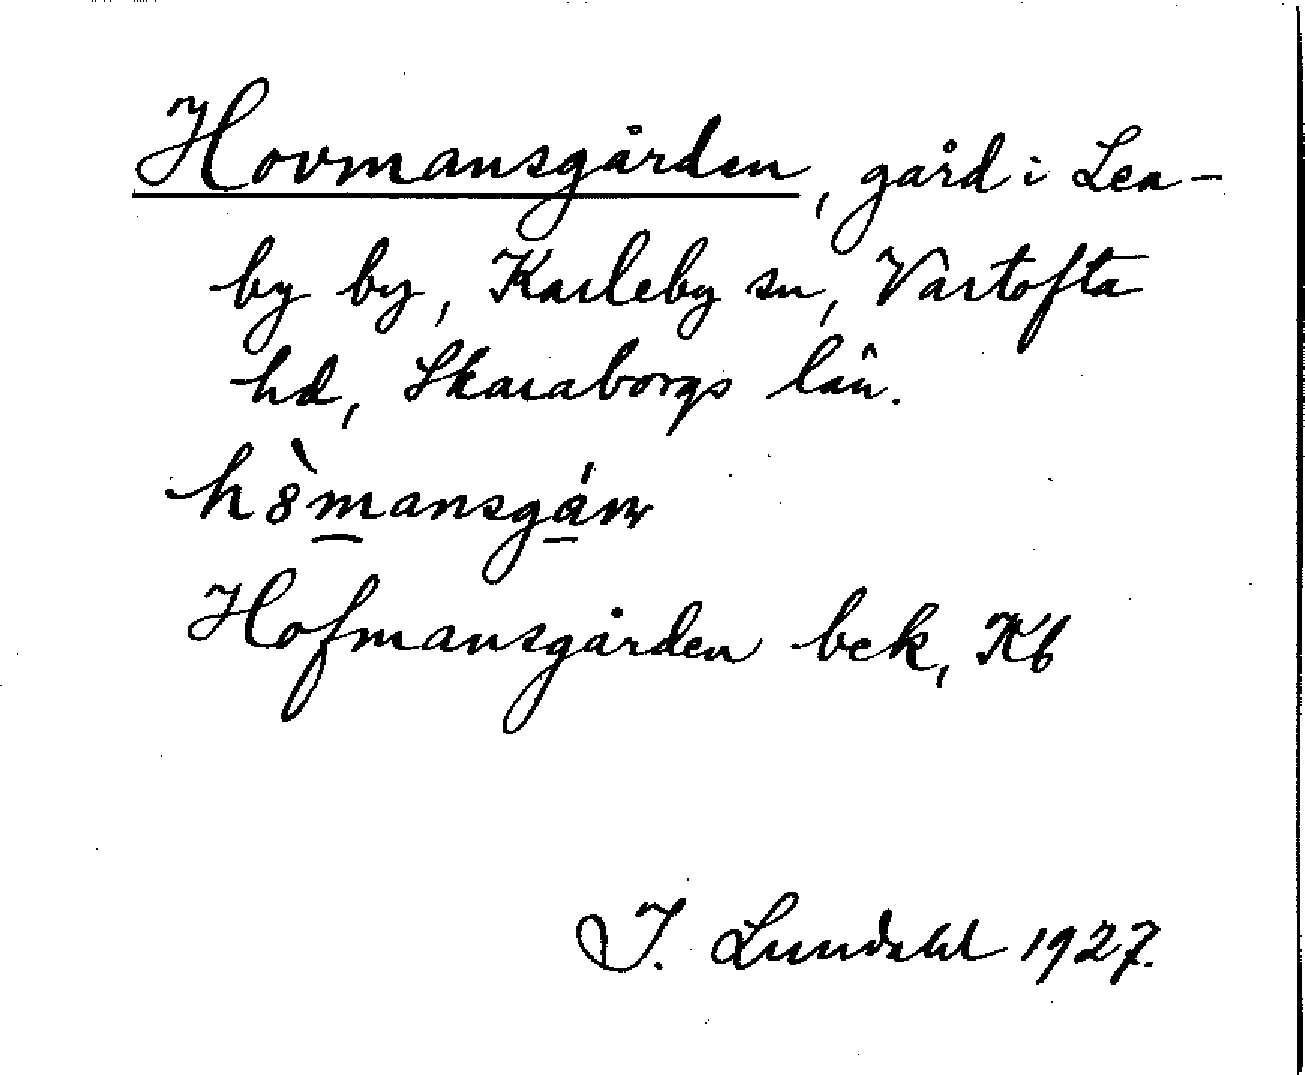 Hovmansgården, gård i Lea-
by by, Karleby sn, Vartofta
hd, Skaraborgs län.
h8̀mansgán
Hofmansgården bek, Kb
I. Lundahl 1927.